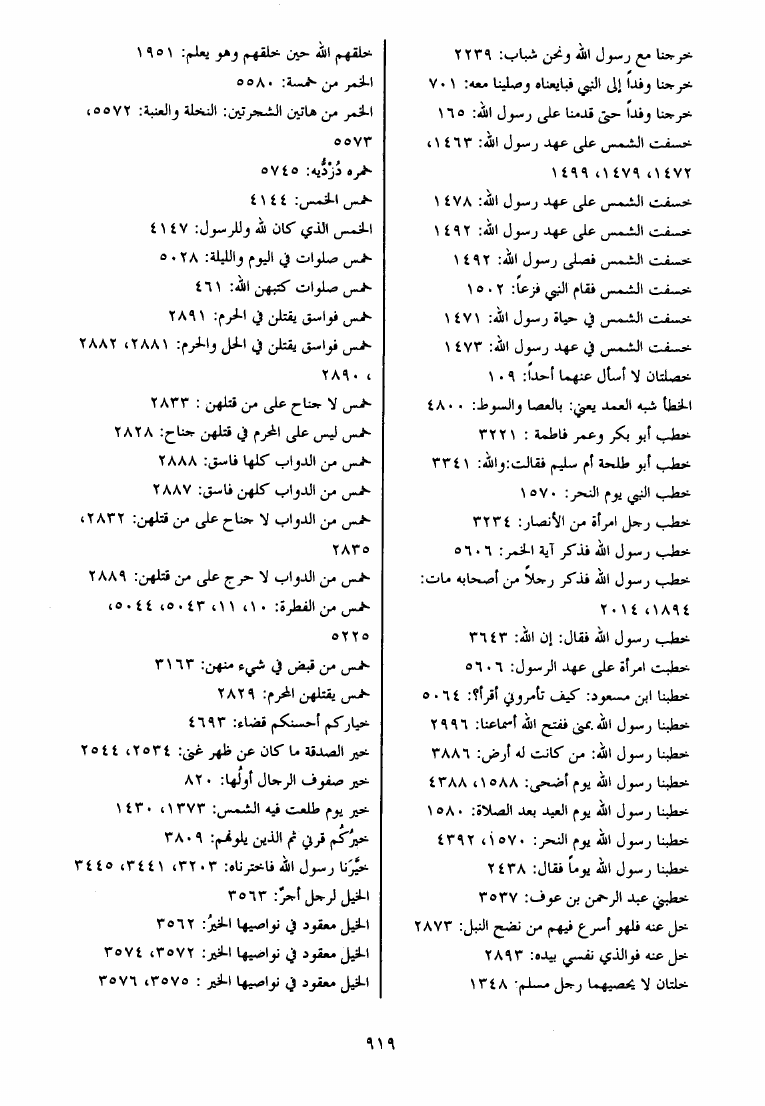 خرجنا مع رسول الله ونحن شباب: ٢٢٣٩
خرجنا وفداً إلى النبي فبايعناه وصلينا معه: ٧٠١
خرجنا وفداً حتى قدمنا على رسول الله: ١٦٥
خسفت الشمس على عهد رسول الله: ١٤٦٣،
١٤٧٢، ١٤٧٩، ١٤٩٩
خسفت الشمس على عهد رسول الله: ١٤٧٨
خسفت الشمس على عهد رسول الله: ١٤٩٢
خسفت الشمس فصلى رسول الله: ١٤٩٢
خسفت الشمس فقام النبي فزعاً: ١٥٠٢
خسفت الشمس في حياة رسول الله: ١٤٧١
خسفت الشمس في عهد رسول الله: ١٤٧٣
خصلتان لا أسأل عنهما أحداً: ١٠٩
الخطأ شبه العمد يعني: بالعصا والسوط: ٤٨٠٠
خطب أبو بكر وعمر فاطمة : ٣٢٢١
خطب أبو طلحة أم سليم فقالت:والله: ٣٣٤١
خطب النبي يوم النحر: ١٥٧٠
خطب رجل امرأة من الأنصار: ٣٢٣٤
خطب رسول الله فذكر آية الخمر: ٥٦٠٦
خطب رسول الله فذكر رجلاً من أصحابه مات:
١٨٩٤، ٢٠١٤
خطب رسول الله فقال: إن الله: ٣٦٤٣
خطبت امرأة على عهد الرسول: ٥٦٠٦
خطبنا ابن مسعود: كيف تأمروني أقرأ؟: ٥٠٦٤
خطبنا رسول الله بمنى ففتح الله أسماعنا: ٢٩٩٦
خطبنا رسول الله: من كانت له أرض: ٣٨٨٦
خطبنا رسول الله يوم أضحى: ١٥٨٨، ٤٣٨٨
خطبنا رسول الله يوم العيد بعد الصلاة: ١٥٨٠
خطبنا رسول الله يوم النحر: ١٥٧٠، ٤٣٩٢
خطبنا رسول الله يوماً فقال: ٢٤٣٨
خطبني عبد الرحمن بن عوف: ٣٥٣٧
خل عنه فلهو أسرع فيهم من نضح النبل: ٢٨٧٣
خل عنه فوالذي نفسي بيده: ٢٨٩٣
خلتان لا يحصيهما رجل مسلم: ١٣٤٨
خلقهم الله حين خلقهم وهو يعلم: ١٩٥١
الخمر من خمسة: ٥٥٨٠
الخمر من هاتين الشجرتين: النخلة والعنبة: ٥٥٧٢،
٥٥٧٣
خمره دُرْدُيه: ٥٧٤٥
خمس الخمس: ٤١٤٤
الخمس الذي كان لله وللرسول: ٤١٤٧
خمس صلوات في اليوم والليلة: ٥٠٢٨
خمس صلوات كتبهن الله: ٤٦١
خمس فواسق يقتلن في الحرم: ٢٨٩١
خمس فواسق يقتلن في الحل والحرم: ٢٨٨١، ٢٨٨٢
، ٢٨٩٠
خمس لا جناح على من قتلهن : ٢٨٣٣
خمس ليس على المحرم في قتلهن جناح: ٢٨٢٨
خمس من الدواب كلها فاسق: ٢٨٨٨
خمس من الدواب كلهن فاسق: ٢٨٨٧
خمس من الدواب لا جناح على من قتلهن: ٢٨٣٢،
٢٨٣٥
خمس من الدواب لا حرج على من قتلهن: ٢٨٨٩
خمس من الفطرة: ١٠، ١١، ٥٠٤٣، ٥٠٤٤،
٥٢٢٥
خمس من قبض في شيء منهن: ٣١٦٣
خمس يقتلهن المحرم: ٢٨٢٩
خياركم أحسنكم قضاء: ٤٦٩٣
خير الصدقة ما كان عن ظهر غنى: ٢٥٣٤، ٢٥٤٤
خير صفوف الرجال أولُها: ٨٢٠
خير يوم طلعت فيه الشمس: ١٣٧٣، ١٤٣٠
خيرُكُم قرني ثم الذين يلونهم: ٣٨٠٩
خيَّرَنا رسول الله فاخترناه: ٣٢٠٣، ٣٤٤١، ٣٤٤٥
الخيل لرجل أجرٌ: ٣٥٦٣
الخيل معقود في نواصيها الخيرُ: ٣٥٦٢
الخيل معقود في نواصيها الخير: ٣٥٧٢، ٣٥٧٤
الخيل معقود في نواصيها الخير : ٣٥٧٥، ٣٥٧٦
٩١٩